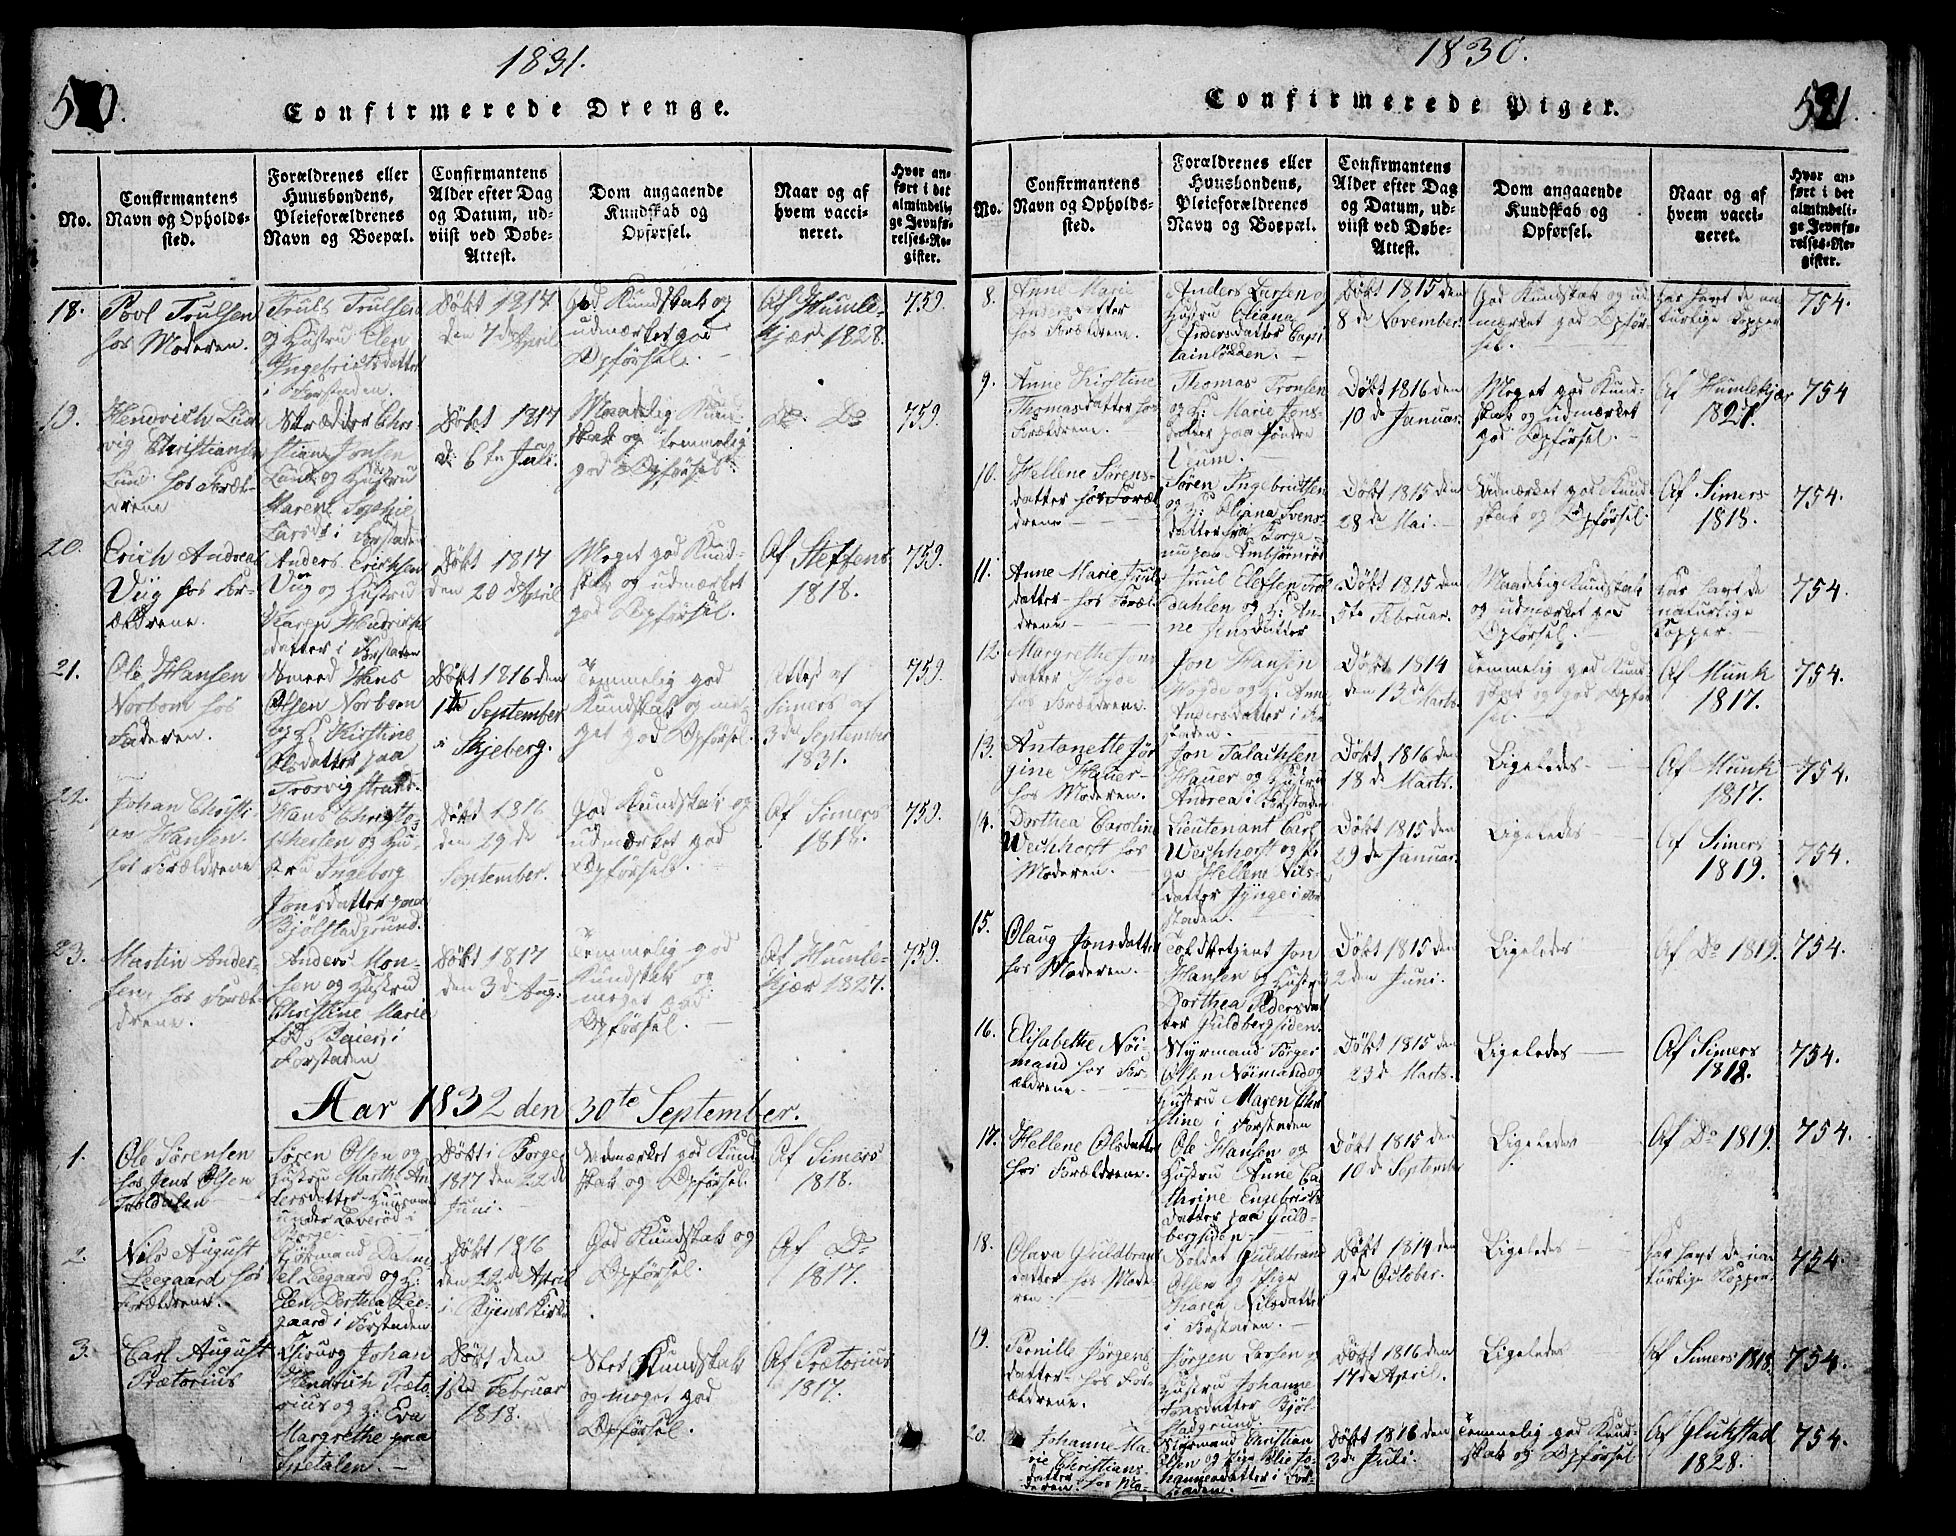 1831.
Confirmerede Drenge.
No.
Confirmantens
Navn og Opholds-
sted.
Forældrenes eller
Huusbondens,
Pleieforældrenes
Navn og Boepæl.
Confirmantens
Alder efter Dag
og Datum, ud-
viist ved Døbe-
Attest.
Dom angaaende
Kundskab og
Opførsel.
Naar og af
hvem vacci-
neret.
Hvor an-
ført i det
almindeli-
ge Jevnfø-
relses-Re-
gister.
18.
Povl Trulsen
hos Moderen.
Truls Trulsen
og Hustru Elen
Ingebrietsdatter
i Forstaden.
Døbt 1817
den 7de April
God Kundskab og
udmærket god
Opførsel.
Af Humle-
kjær 1828.
759.
19.
Hendrich Lud
vig Christians
Lund hos Foræl-
drene
Skræder Chri-
stian Jonsen
Lund og Hustru
Maren Sophie
i Forstaden
Døbt 1817
d: 6te Juli.
Maadelig Kund
skab og temmelig
god Opførsel.
Do. Do
759.
20.
Erich Andreas
Viig hos For-
ældrene.
Anders Erichsen
Viig og Hustru
Karen Hendrichs
datter i Forstaden
Døbt 1817
den 20de April
Meget god Kund-
skab og udmærket
god Opførsel.
Af Steffens
1818.
759.
21.
Ole Hansen
Norbom hos
Faderen.
Smeed Hans
Olsen Norbom
og H. Kirstine
Olsdatter paa
Trosvig strand.
Døbt 1816 den
1te September
i Skjeberg.
Temmelig god
Kundskab og me-
get god Opførsel.
Attest af
Simers af
3de September
1831.
759.
22.
Johan Christi-
an Hansen
hos Forældrene
Hans Christo-
phersen og Hu-
stru Ingeborg
Jonsdatter paa
Bjølstadgrund.
Døbt 1816
den 29de
September.
God Kundskab og
udmærket god
Opførsel.
Af Simers
1818.
759.
23.
Martin Ander-
sen, hos Foræl-
drene.
Anders Mon-
sen og Hustrue
Christine Marie
fød Baier, i
Forstaden
Døbt 1817
den 3de Aug:
Temmelig god
Kundskab og
meget god
Opførsel.
Af Humle-
kjær 1827.
759.
Aar 1832 den 30te September.
1.
Ole Sørensen
hos Jens Olsen
Troldalen
Søren Olsen og
Hustru Marthe An
dersdatter Huusmand
under
Borge.
Døbt i Borge
1817 den 22de
Juni.
Udmærket god Kund
skab og Opførsel.
Af Simers
1818.
2.
Nils August
Leegaard hos
Forældrene.
Leegaard og H:
Elen Dorthea Lee-
gaard i Forstaden
Døbt 1816
den 22de April
i Byens Kirke
God Kundskab og
Opførsel.
Af Do
1817.
3.
Carl August
Prætorius
Chirurg Johan
Hendrich Præto-
rius og H: Eva
Margrethe paa
Døbt den
Februar
1818.
Kundskab
og meget god
Opførsel.
Af Prætorius
1817.
1830.
Confirmerede Piger.
No.
Confirmantens
Navn og Opholds-
sted.
Forældrenes eller
Huusbondens,
Pleieforældrenes
Navn og Boepæl.
Confirmantens
Alder efter Dag
og Datum, ud-
viist ved Døbe-
Attest.
Dom angaaende
Kundskab og
Opførsel.
Naar og af
hvem vacci-
neret.
Hvor an-
ført i det
almindeli-
ge Jevnfø-
relses-Re-
gister.
8.
Anne Marie
Andersdatter
hos Forældrene
Anders Larsen og
Hustru Eliana
Andersdatter Capi-
tainløkken.
Døbt 1815 den
8de November.
God Kundskab og ud
mærket god Opfør-
sel.
har havt de na
turlige Kopper
754.
9.
Anne Kirstine
Thomasdatter hos
Forældrene.
Thomas Tronsen
og H: Marie Jons-
datter paa Søndre
Veum.
Døbt 1816 den
10de Januar.
Meget god Kund-
skab og udmærket
god Opførsel.
Af Humlekjær
1827.
754
10.
Hellene Sørens-
datter hos Foræl
drene
Søren Ingebrittsen
og H: Eliana Svens-
datter fra Borge
nu paa Ambjørnrød
Døbt 1815 den
28de Mai.
Udmærket god Kund
skab og Opførsel
Af Simers
1818.
754.
11.
Anne Marie Juul
datter hos Foræl
drene
Juul Olefsen Trol
dahlen og H: An-
ne Jensdatter
Døbt 1815 den
5te Februar.
Maadelig Kundskab
og udmærket god
Opførsel.
har havt de
naturlige
Kopper
754.
12.
Margrethe Jons
datter Høyde
hos Forældrene.
Jon Hansen
Høyde og H: Anne
Andersdatter i For
staden.
Døbt 1814
den 13de Marts.
Temmelig god Kund-
skab og god Opfør
sel.
Af Munk
1817.
754.
13.
Antonette Jør
gine Hauer
hos Moderen.
Jon Falachsen
Hauer og Hustru
Andrea i Forstaden
Døbt 1816 den
18de Marts.
Ligeledes
Af Munk
1817.
754.
14.
Dorthea Caroline
Wechhorst hos
Moderen.
Lieutenant Carl
Wechhorst og Pi
ge Hellene Nils-
datter Jynge i For
staden.
Døbt 1815 den
29de Januar.
Ligeledes
Af Simers
1819.
754.
15.
Olaug Jonsdatter
hos Moderen.
Toldbetjent Jon
Hansen og Hustru
Dorthea Pedersdat
ter Guldbergsiden.
Døbt 1815 den
2den Juni.
Ligeledes
Af Do 1819.
754.
16.
Elisabethe Nøi-
mand hos For-
ældrene
Styrmand Torger
Olsen Nøimand og
Hustru Maren Chri
stine i Forstaden
Døbt 1815 den
23de Marts.
Ligeledes
Af Simers
1818.
754.
17.
Hellene Olsdatter
hos Forældrene.
Ole Hansen og
Hustru Anne Ca-
thrine Engebrits
datter paa Guld-
bergsiden
Døbt 1815 den
10de September
Ligeledes
Af Do 1819.
754.
18.
Olava Guldbrands
datter hos Mode-
ren.
Soldat Guldbrand
Olsen og Pige
Karen Nilsdatter
i Forstaden.
Døbt 1814 den
9de October.
Ligeledes
har havt de na
turlige Kopper
754.
19.
Pernille Jørgens
datter hos For-
ældrene.
Jørgen Larsen og
Hustru Johanne
datter Bjøl-
stadgrund.
Døbt 1816 den
17de April.
Ligeledes
Af Simers 1818.
754.
20.
Johanne Ma-
rie Christians
datter
hos Mo-
deren.
Styrmand Christian
Olsen og Pige
Johannesdatter i For-
staden.
Døbt 1816 den
3de Juli.
Temmelig god Kund-
skab og Opførsel
Af Glükstad
1828.
754.